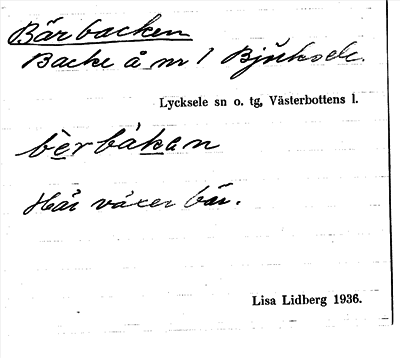 Bärbacken
Backe å nr 1 Bjurksele.
Lycksele sn o. tg, Västerbottens l.
bèrbàkan
Här växer bär.
Lisa Lidberg 1936.